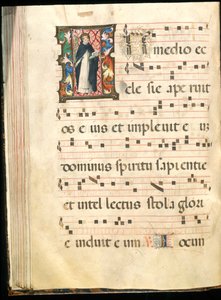 In medio ec
cle sie ape ruit
os e ius et implevit e um
dominus spiritu sapientie
et intel lectus stola glori
e induit e um